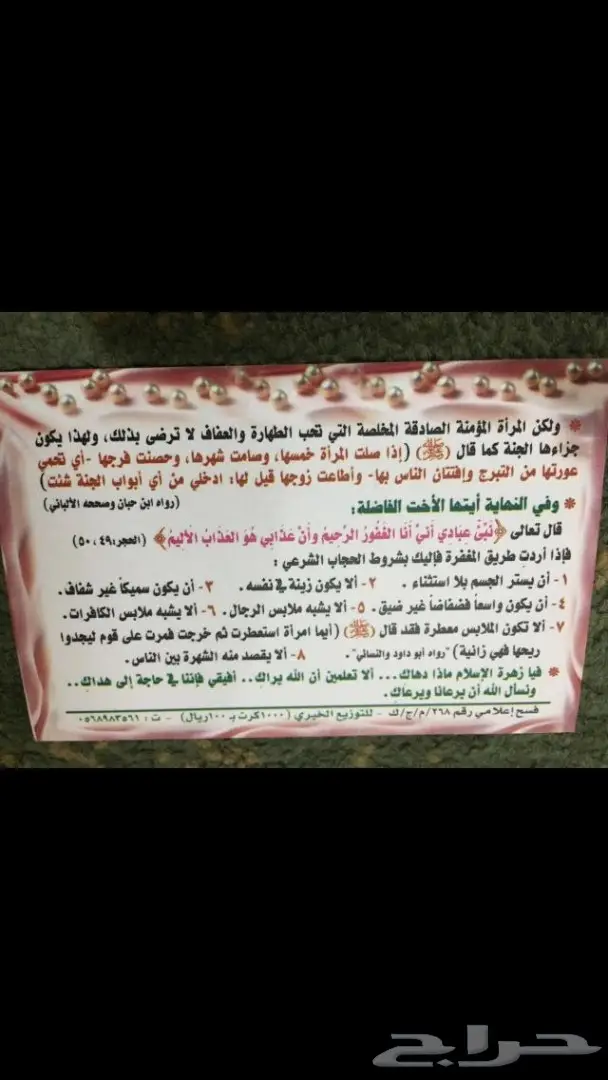 * ولكن المرأة المؤمنة الصادقة المخلصة التي تحب الطهارة والعفاف لا ترضى بذلك، ولهذا يكون
جزاءها الجنة كما قال (ﷺ) (إذا صلت المرأة خمسها، وصامت شهرها، وحصنت فرجها -أي تحمي
عورتها من التبرج وإفتتان الناس بها- وأطاعت زوجها قيل لها: ادخلي من أي أبواب الجنة شئت)
(رواه ابن حبان وصححه الألباني)
* وفي النهاية أيتها الأخت الفاضلة:
قال تعالى ﴿نَبِّئْ عِبَادِي أَنِّي أَنَا الغَفُورُ الرَّحِيمُ وَأَنَّ عَذَابِي هُوَ العَذَابُ الأَلِيمُ﴾ (الحجر:٤٩، ٥٠)
فإذا أردتِ طريق المغفرة فإليك بشروط الحجاب الشرعي :
١- أن يستر الجسم بلا استثناء . ٢- ألا يكون زينة في نفسه . ٣- أن يكون سميكاً غير شفاف .
٤- أن يكون واسعاً فضفاضاً غير ضيق . ٥- ألا يشبه ملابس الرجال . ٦- ألا يشبه ملابس الكافرات .
٧- ألا تكون الملابس معطرة فقد قال (ﷺ) (أيما امرأة استعطرت ثم خرجت فمرت على قوم ليجدوا
ريحها فهي زانية) "رواه أبو داود والنسائي" . ٨- ألا يقصد منه الشهرة بين الناس .
* فيا زهرة الإسلام ماذا دهاك... ألا تعلمين أن الله يراك.. أفيقي فإننا في حاجة إلى هداك..
ونسأل الله أن يرعانا ويرعاك.
فسح إعلامي رقم ٢٦٨/م/ج/ك - للتوزيع الخيري (١٠٠٠كرت بـ ١٠٠ريال) - ت : ٠٥٦٨٩٨٣٥٦١
حراج